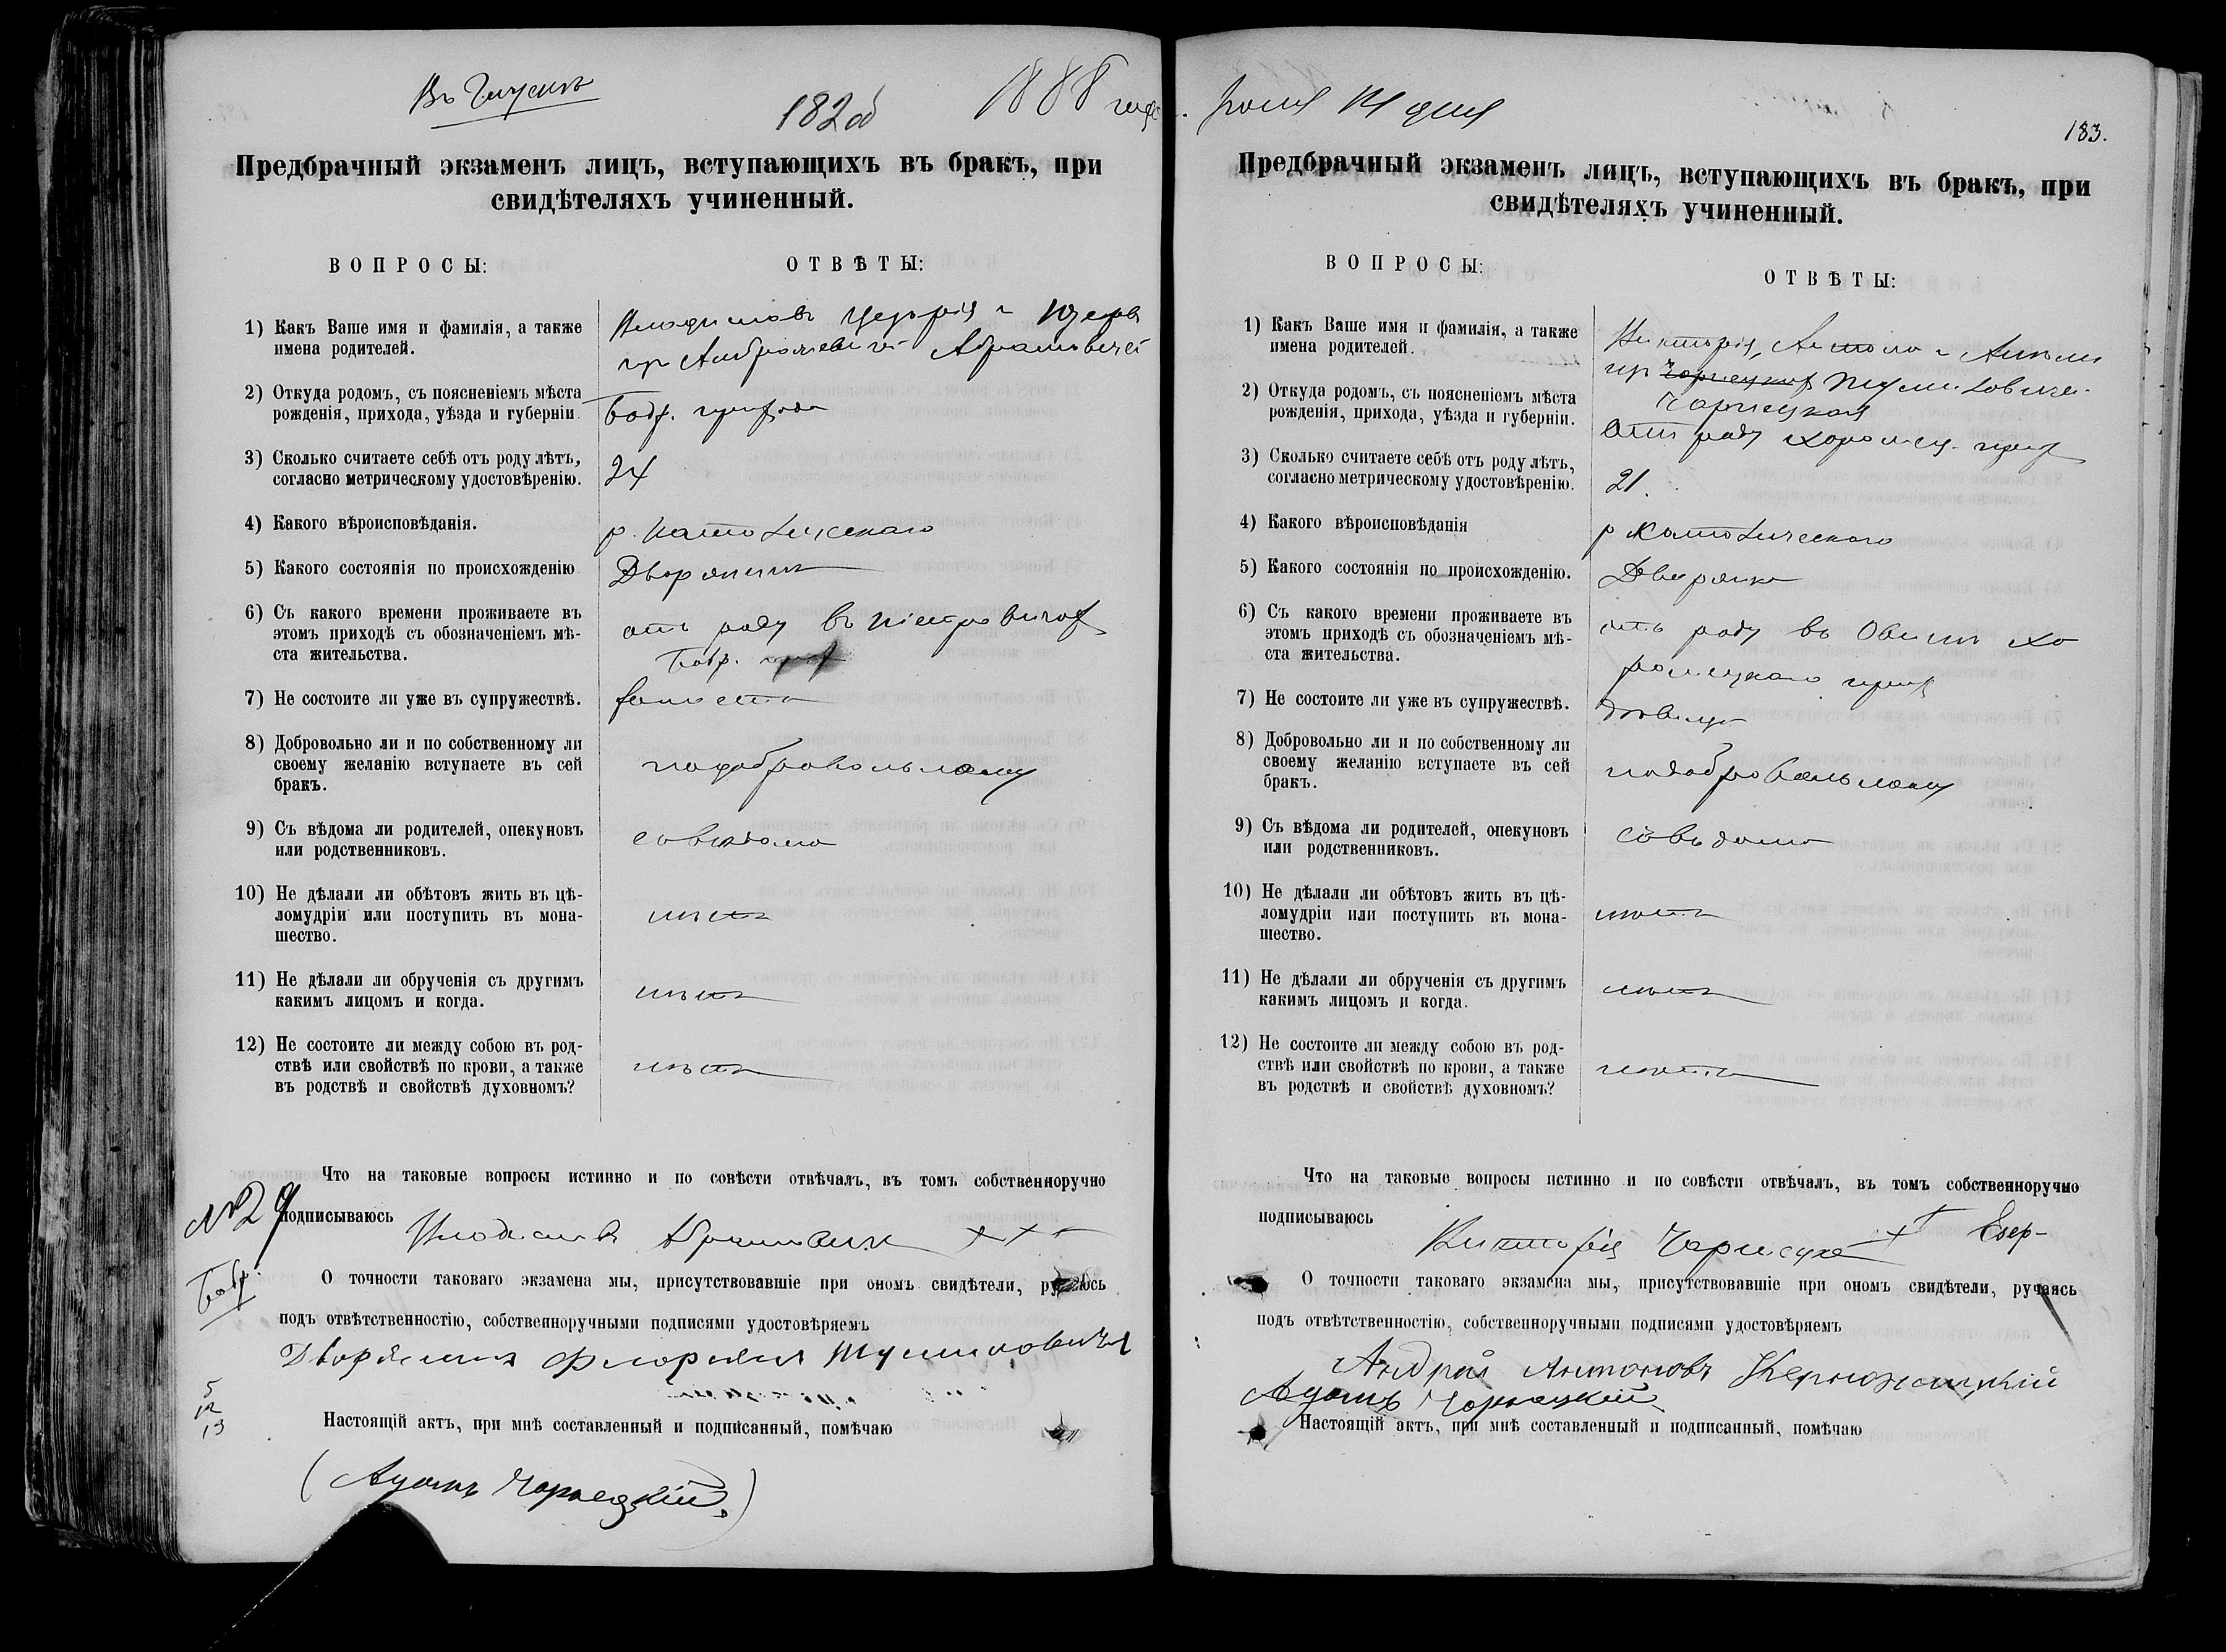 182об
1888 года
Предбрачный экзаменъ лицъ, вступающихъ въ бракъ, при
свидѣтеляхъ учиненный.
ВОПРОСЫ:
ОТВѢТЫ:
1) Какъ Ваше имя и фамилія, а также
имена родителей.
2) Откуда родомъ, съ поясненіемъ мѣста
рожденія, прихода, уѣзда и губерніи.
Бобр. прихода
3) Сколько считаете себѣ отъ роду лѣтъ,
согласно метрическому удостовѣренію.
24
4) Какого вѣроисповѣданія.
р. католическаго
5) Какого состоянія по происхожденію
Дворянинъ
6) Съ какого времени проживаете въ
этомъ приходѣ съ обозначеніемъ мѣ-
ста жительства.
отъ роду въ
Бобр.
7) Не состоите ли уже въ супружествѣ.
8) Добровольно ли и по собственному ли
своему желанію вступаете въ сей
бракъ.
подобровольному
9) Съ вѣдома ли родителей, опекуновъ
или родственниковъ.
совѣдома
10) Не дѣлали ли обѣтовъ жить въ цѣ-
ломудріи или поступить въ мона-
шество.
нѣтъ
11) Не дѣлали ли обрученія съ другимъ
какимъ лицомъ и когда.
нѣтъ
12) Не состоите ли между собою въ род-
ствѣ или свойствѣ по крови, а также
въ родствѣ и свойствѣ духовномъ?
нѣтъ
Что на таковые вопросы истинно и по совѣсти отвѣчалъ, въ томъ собственноручно
№29
подписываюсь
+++
Бобр.
О точности таковаго экзамена мы, присутствовавшіе при ономъ свидѣтели, ручаюсь
подъ отвѣтственностію, собственноручными подписями удостовѣряемъ
Дворянинъ Флоріанъ
5
12
13
Настоящій актъ, при мнѣ составленный и подписанный, помѣчаю
(Адамъ Чарнецкій)
183.
Предбрачный экзаменъ лицъ, вступающихъ въ бракъ, при
свидѣтеляхъ учиненный.
ВОПРОСЫ:
ОТВѢТЫ:
1) Какъ Ваше имя и фамилія, а также
имена родителей.
Чарнецкая
2) Откуда родомъ, съ поясненіемъ мѣста
рожденія, прихода, уѣзда и губерніи.
отъ роду
3) Сколько считаете себѣ отъ роду лѣтъ,
согласно метрическому удостовѣренію.
21.
4) Какого вѣроисповѣданія
р католическаго
5) Какого состоянія по происхожденію.
Дворянка
6) Съ какого времени проживаете въ
этомъ приходѣ съ обозначеніемъ мѣ-
ста жительства.
отъ роду въ
7) Не состоите ли уже въ супружествѣ.
дѣвица
8) Добровольно ли и по собственному ли
своему желанію вступаете въ сей
бракъ.
подобровольному
9) Съ вѣдома ли родителей, опекуновъ
или родственниковъ.
совѣдома
10) Не дѣлали ли обѣтовъ жить въ цѣ-
ломудріи или поступить въ мона-
шество.
нѣтъ
11) Не дѣлали ли обрученія съ другимъ
какимъ лицомъ и когда.
нѣтъ
12) Не состоите ли между собою въ род-
ствѣ или свойствѣ по крови, а также
въ родствѣ и свойствѣ духовномъ?
нѣтъ
Что на таковые вопросы истинно и по совѣсти отвѣчалъ, въ томъ собственноручно
подписываюсь
Викторія
О точности таковаго экзамена мы, присутствовавшіе при ономъ свидѣтели, ручаясь
подъ отвѣтственностію, собственноручными подписями удостовѣряемъ
Андрей Антоновъ
Адамъ Чарнецкій
Настоящій актъ, при мнѣ составленный и подписанный, помѣчаю